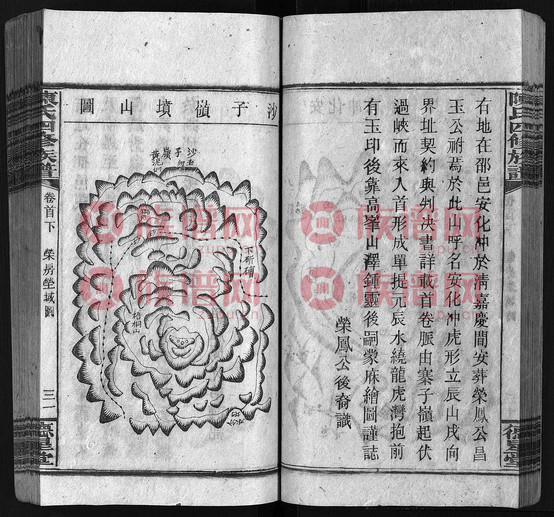 右地在邵邑安化冲於清嘉慶間安葬榮鳳公昌
玉公祔焉於此山呼名安化冲虎形立辰山戌向
界址契約與判决書詳載首卷脈由寨子嶺起伏
過峽而來入首形成單提元辰水繞龍虎灣抱前
有玉印後靠高峯山澤鍾靈後嗣蒙庥繪圖謹誌
榮鳳公後裔識
沙子嶺墳山圖
梧桐山
陳氏四修族譜
卷首下
榮房塋域圖
三一
德星堂
族谱网
族谱网
族谱网
族谱网